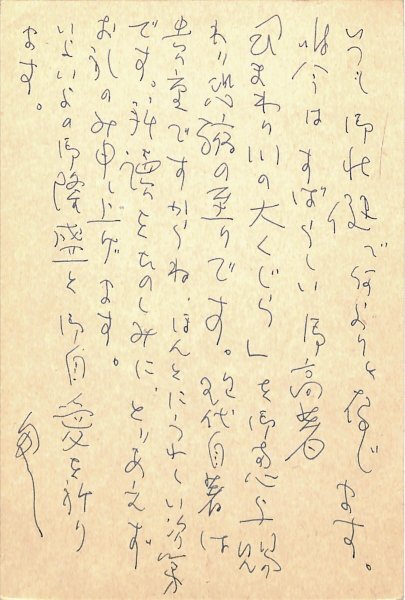 いつも御壮健で何よりと存じます。
昨今はすばらしい御高著
「ひまわり川の大くじら」を御恵与賜
わり恐縮の至りです。現代自著は
貴重ですからね、ほんとにうれしい次第
です。拝読をたのしみに、とりあえず
お礼のみ申し上げます。
いよいよの御隆盛と御自愛を祈り
ます。